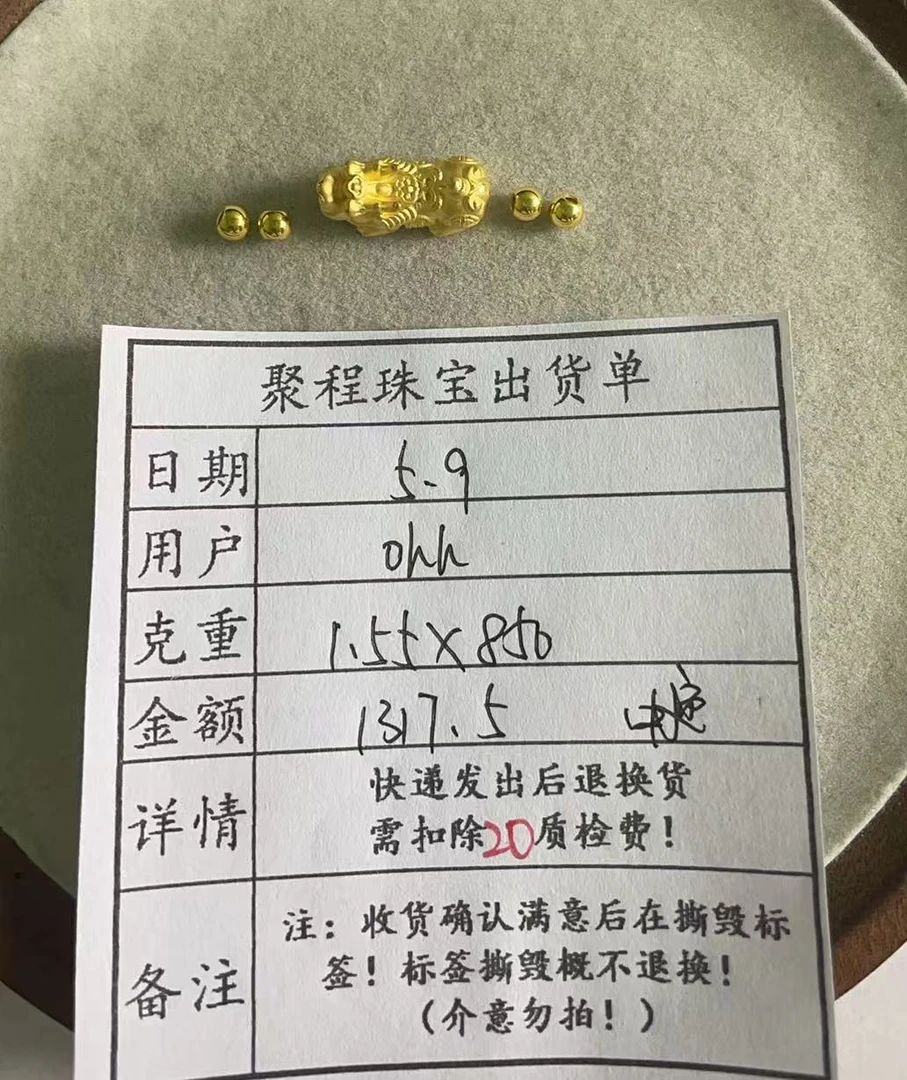 聚程珠宝出货单
日期 5-9
用户 ohh
克重 1.55×850
金额 1317.5
详情 快递发出后退换货
需扣除20质检费！
备注 注：收货确认满意后在撕毁标
签！标签撕毁概不退换！
（介意勿拍！）